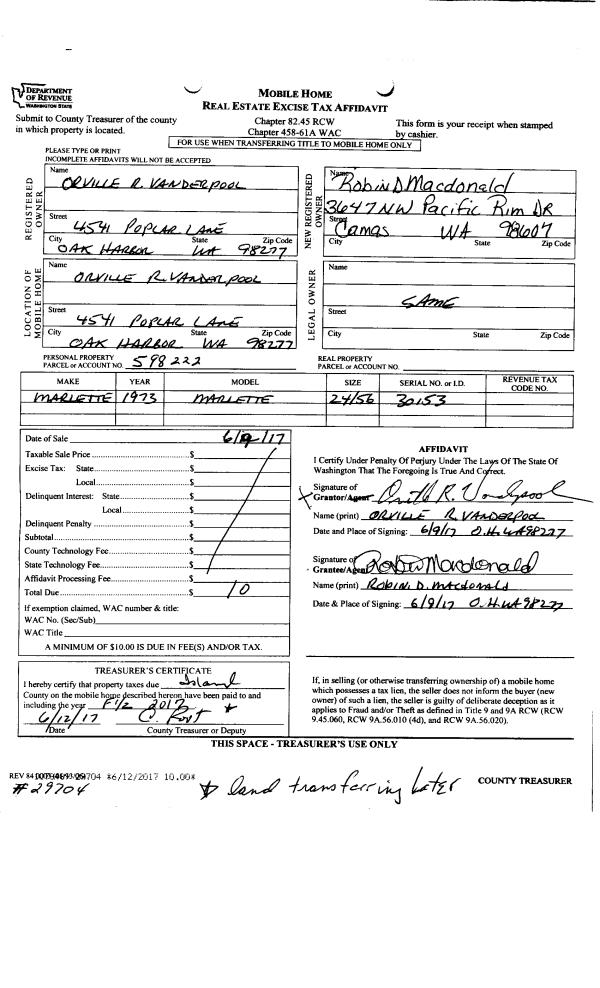 DEPARTMENT
OF REVENUE
WASHINGTON STATE
MOBILE HOME
REAL ESTATE EXCISE TAX AFFIDAVIT
Submit to County Treasurer of the county
in which property is located.
Chapter 82.45 RCW
Chapter 458-61A WAC
This form is your receipt when stamped
by cashier.
FOR USE WHEN TRANSFERRING TITLE TO MOBILE HOME ONLY
PLEASE TYPE OR PRINT
INCOMPLETE AFFIDAVITS WILL NOT BE ACCEPTED
REGISTERED OWNER
Name
ORVILLE R. VANDERPOOL
Street
4541 POPLAR LANE
City State Zip Code
OAK HARBOR WA 98277
NEW REGISTERED OWNER
Name
Robin D Macdonald
3647 NW Pacific Rim DR
Street
Camas WA 98607
City State Zip Code
LOCATION OF MOBILE HOME
Name
ORVILLE R. VANDERPOOL
Street
4541 POPLAR LANE
City State Zip Code
OAK HARBOR WA 98277
LEGAL OWNER
Name
SAME
Street
City State Zip Code
PERSONAL PROPERTY
PARCEL or ACCOUNT NO. 598222
REAL PROPERTY
PARCEL or ACCOUNT NO.
MAKE YEAR MODEL SIZE SERIAL NO. or I.D. REVENUE TAX CODE NO.
MARLETTE 1973 MARLETTE 24/56 30153
Date of Sale 6/9/17
Taxable Sale Price $
Excise Tax: State $
Local $
Delinquent Interest: State $
Local $
Delinquent Penalty $
Subtotal $
County Technology Fee $
State Technology Fee $
Affidavit Processing Fee $
Total Due $ 10
If exemption claimed, WAC number & title:
WAC No. (Sec/Sub)
WAC Title
A MINIMUM OF $10.00 IS DUE IN FEE(S) AND/OR TAX.
AFFIDAVIT
I Certify Under Penalty Of Perjury Under The Laws Of The State Of
Washington That The Foregoing Is True And Correct.
Signature of
Grantor/Agent Orville R. Vanderpool
Name (print) ORVILLE R. VANDERPOOL
Date and Place of Signing: 6/9/17 O.H. WA 98277
Signature of
Grantee/Agent Robin Macdonald
Name (print) ROBIN D. MACDONALD
Date & Place of Signing: 6/9/17 O.H. WA 98277
TREASURER'S CERTIFICATE
I hereby certify that property taxes due Island
County on the mobile home described hereon have been paid to and
including the year F 1/2 2017
6/12/17
Date County Treasurer or Deputy
If, in selling (or otherwise transferring ownership of) a mobile home
which possesses a tax lien, the seller does not inform the buyer (new
owner) of such a lien, the seller is guilty of deliberate deception as it
applies to Fraud and/or Theft as defined in Title 9 and 9A RCW (RCW
9.45.060, RCW 9A.56.010 (4d), and RCW 9A.56.020).
THIS SPACE - TREASURER'S USE ONLY
29704 6/12/2017 10.00
#29704
land transferring later
COUNTY TREASURER